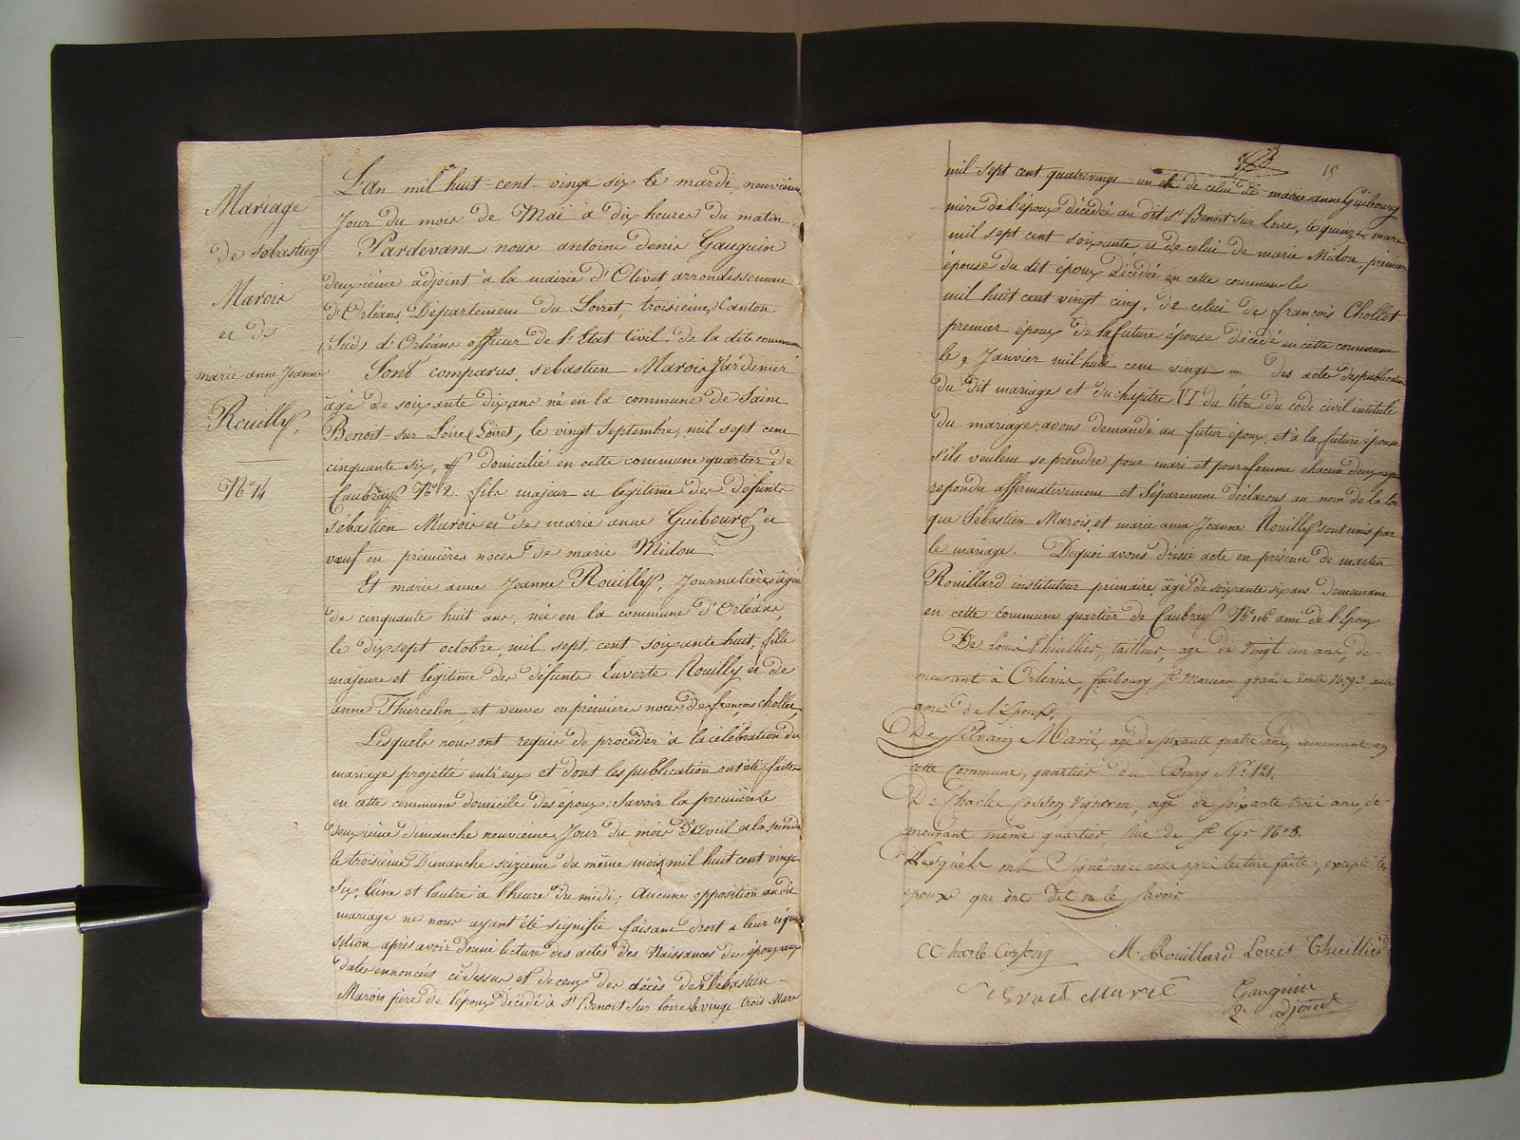 Mariage
de sebastien
Marois
et de
marie anne Jeanne
Rouilly.
N° 14
L'An mil huit-cent-vingt six le mardi neuvième
Jour du mois de Mai à dix heures du matin
Pardevant nous antoine denis Gauguin
deuxième adjoint à la mairie d'Olivet arrondissement
d'Orléans, Département du Loiret, troisième Canton
Sud d'Orléans officier de l'Etat Civil de la dite commune
Sont comparus, sebastien Marois Jardinier
âgé de soixante dix ans né en la commune de Saint
Benoit-sur Loire, Loiret, le vingt Septembre, mil sept cent
cinquante six, domicilié en cette commune quartier de
Caubray N° 2. fils majeur et légitime des défunts
sebastien Marois et de marie anne Guibourg et
veuf en premières noces de marie Midou
Et marie anne Jeanne Rouilly, Journalière, âgée
de cinquante huit ans, née en la commune d'Orléans,
le dix sept octobre, mil sept, cent soixante huit, fille
majeure et légitime des défunts Euverte Rouilly et de
anne Thiercelin, et veuve en premières noces de françois chollet,
Lesquels nous ont requis de procéder à la célébration du
mariage projetté entr'eux et dont les publication ont été faites
en cette commune domicile des époux. Savoir la première le
deuxième dimanche neuvième Jour du mois d'Avril et la seconde
le troisième Dimanche seizième du même mois, mil huit cent vingt
Six, l'une et l'autre à l'heure du midi, Aucune opposition au dit
mariage ne nous ayant été signifié faisant droit à leur réqui
sition après avoir donné lecture des actes des Naissances des époux aux
dates énnoncés ci dessus et de ceux des décès de Sebastien
Marois père de l'époux décédé à St Benoit sur loire le vingt trois Mars
15
mil sept cent quatrevingt un et de celui de marie anne Guibourg
mère de l'époux décédée au dit St Benoit sur loire, le quinze mars
mil sept cent soixante et de celui de marie Midou, première
épouse du dit époux décédée en cette commune le
mil huit cent vingt cinq, de celui de françois Chollet
premier époux de la future épouse décédé en cette commune
le 3 Janvier mil huit cent vingt des actes de publication
du dit mariage et du chapitre VI du titre du code civil intitulé
du mariage avons demandé au futur époux, et à la future épouse
s'ils veulent se prendre pour mari et pour femme chacun deux ayant
repondu affirmativement et Séparément déclarons au nom de la loi
que Sébastien Marois, et marie anne Jeanne Rouilly sont unis par
le mariage. Dequoi avons dressé acte en présence de martin
Rouillard instituteur primaire, âgé de soixante six ans demeurant
en cette commune quartier de Caubray N° 116 ami de l'Epoux
De Louis Thuillier, tailleur, agé de vingt un ans, de-
meurant à Orléans, faubourg St Marceau grande route N° 93 aussi
ami de l'Epoux,
De Silvain Marié, agé de soixante quatre ans, demeurant en
cette Commune, quartier du Bourg N° 121.
De Charles Corfon, Vigneron, agé de soixante trois ans, de-
meurant même quartier, Rue de St Cyr N° 3.
Lesquels ont Signé avec nous après lecture faite, excepté les
époux qui ont dit ne le Savoir
Charle Corfon M. Rouillard Louis Thuillier
Silvain Marié Gauguin
2e adjoint